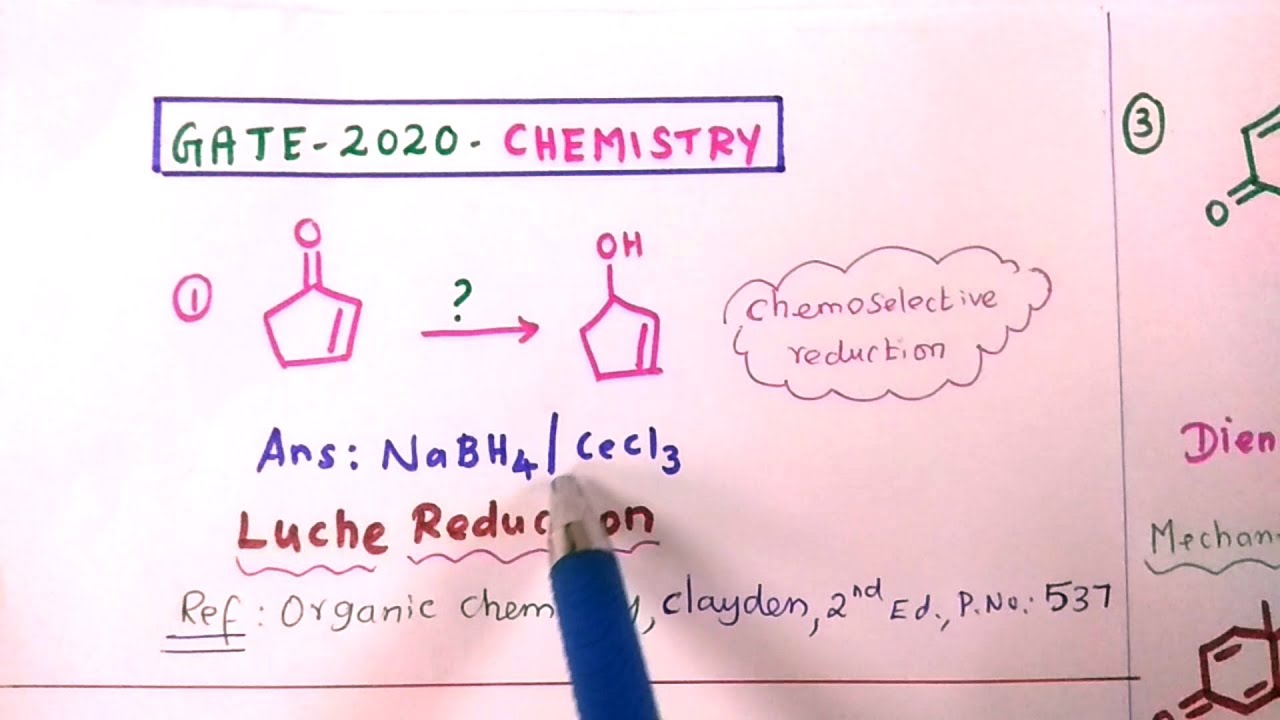 GATE-2020- CHEMISTRY
① O ? OH
chemoselective
reduction
Ans: NaBH4 | CeCl3
Luche
Ref: Organic, Clayden, 2nd Ed., P.No.: 537
③
O
O